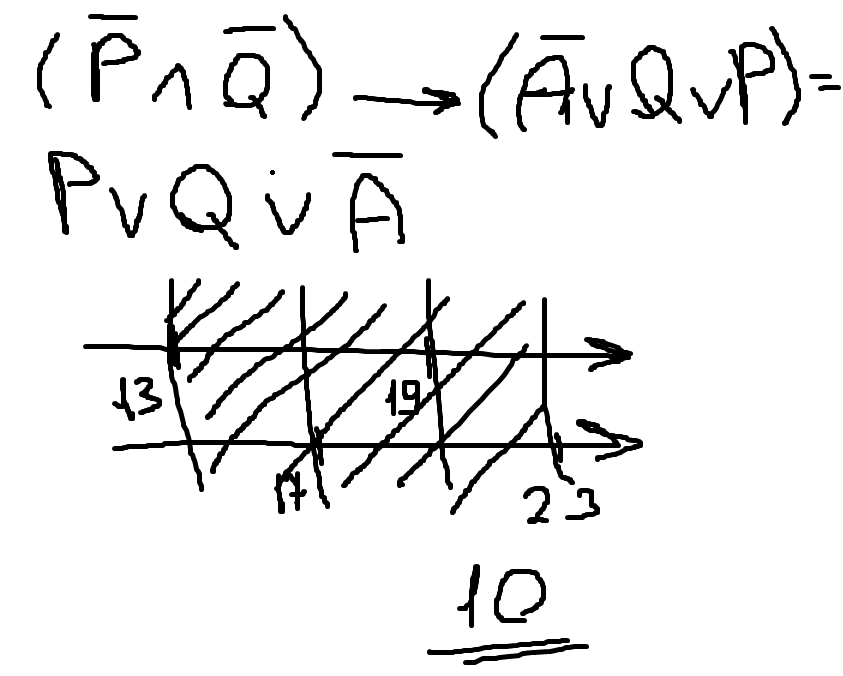 (P̅ ∧ Q̅) → (A̅ ∨ Q ∨ P) =
P ∨ Q ∨ A̅
13 19
17 23
10